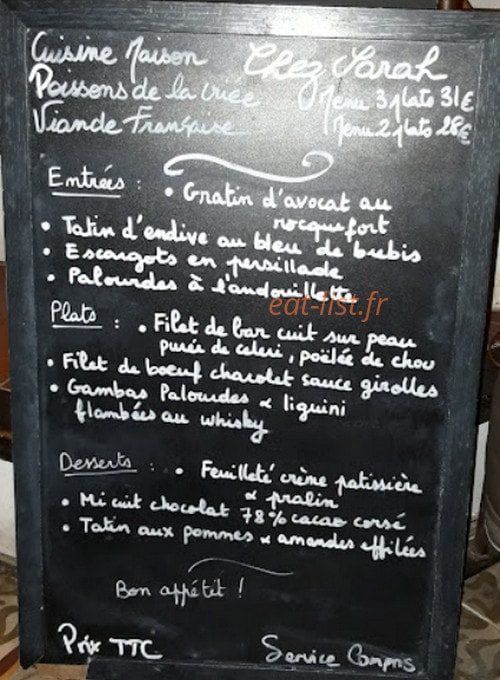 Cuisine Maison
Chez Sarah
Poissons de la criée
Menu 3 plats 31€
Viande Française
Menu 2 plats 28€
Entrées : • Gratin d'avocat au
rocquefort
• Tatin d'endive au bleu de brebis
• Escargots en persillade
• Palourdes à l'andouillette
eat-list.fr
Plats : • Filet de bar cuit sur peau
purée de celeri, poëlée de chou
• Filet de boeuf charolet sauce girolles
• Gambas Palourdes & liguini
flambées au whisky
Desserts : • Feuilleté crème patissière
& pralin
• Mi cuit chocolat 78% cacao corsé
• Tatin aux pommes & amandes effilées
Bon appétit !
Prix TTC
Service Compris